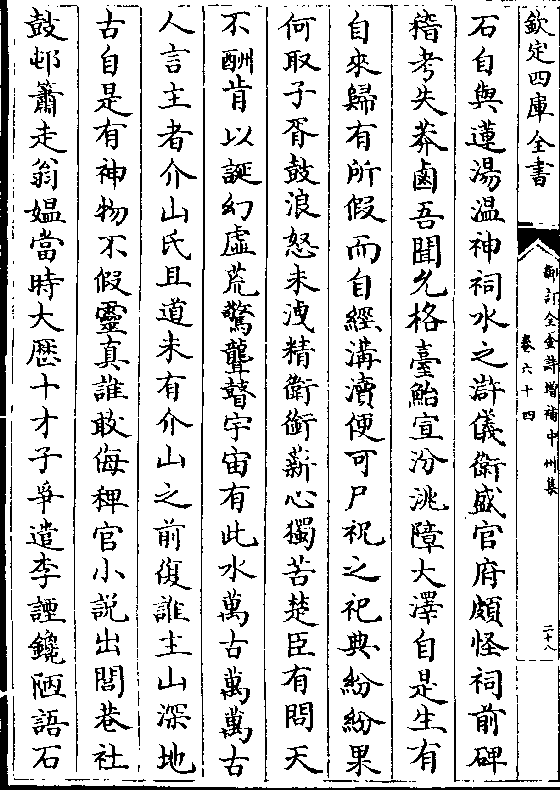 欽定四庫全書
御訂全金詩增補中州集
卷六十四
二十八
石自與蓮湯温神祠水之滸儀衛盛官府頗怪祠前碑
稽考失莽鹵吾聞允格臺鮐宣汾洮障大澤自是生有
自來歸有所假而自經溝瀆便可尸祝之祀典紛紛果
何取子胥鼓浪怒未洩精衛銜薪心獨苦楚臣有問天
不酬肯以誕幻虛荒驚聾瞽宇宙有此水萬古萬萬古
人言主者介山氏且道未有介山之前復誰主山深地
古自是有神物不假靈真誰敢侮稗官小説出閭巷社
鼓邨簫走翁媼當時大厯十才子爭遣李諲鑱陋語石